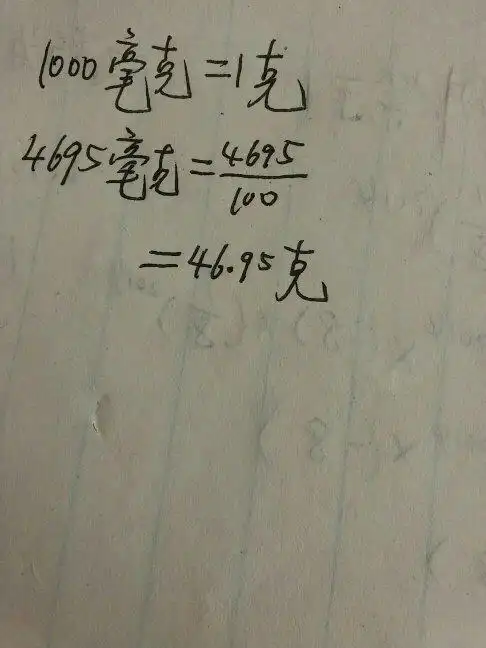 1000毫克=1克
4695毫克=4695/100
=46.95克